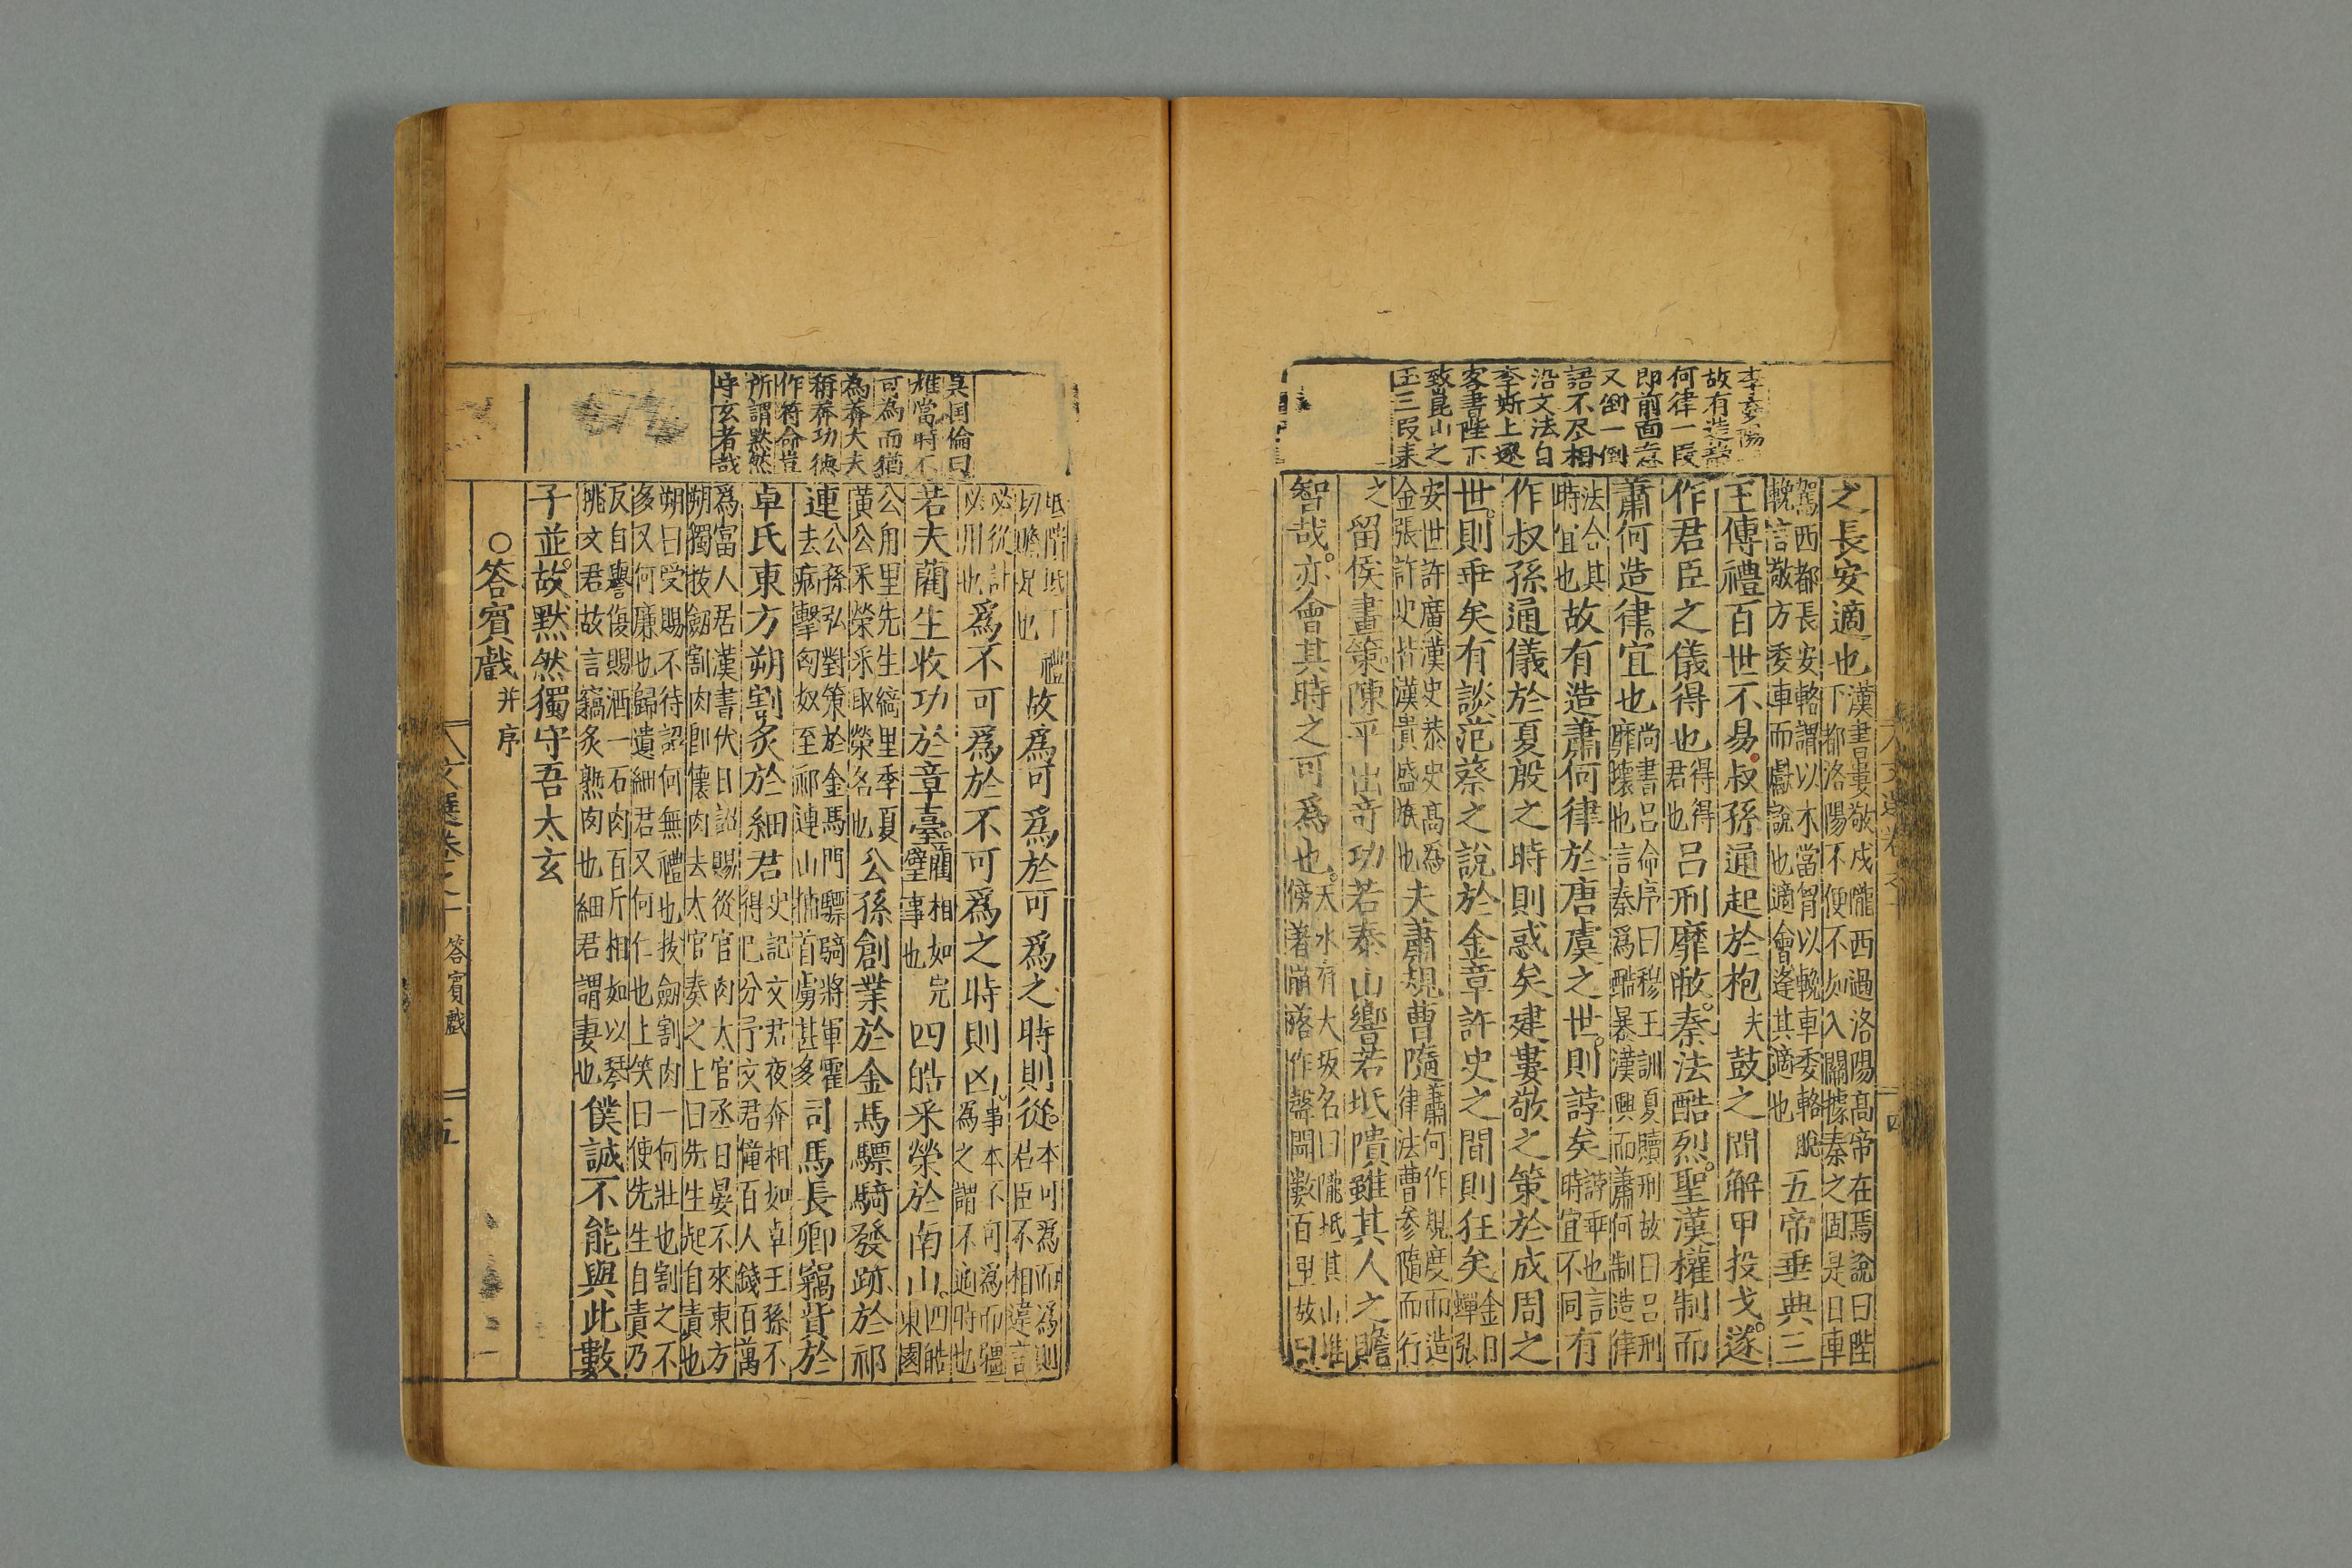 故有造蕭
何律一段
即前面意
又倒一倒
語不尽相
沿文法自
李斯上逐
客書陛下
致崑山之
玉三段来
之長安適也漢書婁敬戍隴西過洛陽高帝在焉說曰陛下都洛陽不便不如入關據秦之固是日車
駕西都長安輅謂以木當胷以輓車委輅脫輓言敬方委車而獻說也適會逢其適也五帝垂典三
王傳禮百世不易叔孫通起於枹夫鼓之間解甲投戈遂
作君臣之儀得也得得君也呂刑靡敝秦法酷烈聖漢權制而
蕭何造律宜也尚書呂命序曰穆王訓夏贖刑故曰呂刑靡壞也言秦爲酷暴漢興而蕭何制造律
法合其時宜也故有造蕭何律於唐虞之世則誖矣誖乖也言時宜不同有
作叔孫通儀於夏殷之時則惑矣建婁敬之策於成周之
世則乖矣有談范蔡之說於金章許史之間則狂矣金日蟬弘
安世許廣漢史恭史高為金張許史皆漢貴盛族也夫蕭規曹隨蕭何作規度而造律法曹參隨而行
之留侯畫策陳平出奇功若泰山響若坻隤雖其人之贍
智哉亦會其時之可爲也天水有大坂名曰隴坻其山堆傍著崩落作聲聞數百里故曰
吳国倫曰
雄當時不
可為而猶
為莽大夫
稱莽功德
作符命豈
所謂黙然
守玄者哉
坻隤坻丁禮切贍足也故爲可爲於可爲之時則從本可爲而爲則君臣不相違言
必從計必用也爲不可爲於不可爲之時則凶事本不可爲而彊爲之謂不適時也
若夫藺生收功於章臺藺相如完璧事也四皓采榮於南山四皓東園
公甪里先生綺里季夏黄公采榮采取榮名也公孫創業於金馬驃騎發跡於祁
連公孫弘對策於金馬門驃騎將軍霍去病擊匈奴至祁連山捕首虜甚多司馬長卿竊貲於
卓氏東方朔割炙於細君史記文君夜奔相如卓王孫不得已分予文君僮百人錢百萬
爲富人居漢書伏日詔賜從官肉太官丞日晏不來東方朔獨拔劔割肉即懷肉去太官奏之上曰先生起自責也
朔曰受賜不待詔何無禮也拔劔割肉一何壯也割之不多又何廉也歸遺細君又何仁也上笑曰使先生自責乃
反自譽復賜酒一石肉百斤相如以琴挑文君故言竊炙熟肉也細君謂妻也僕誠不能與此數
子並故黙然獨守吾太玄
〇答賓戲并序
答賓戲
五